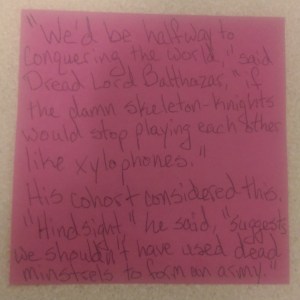 "We'd be halfway to
conquering the world," said
Dread Lord Balthazar, "if
the damn skeleton-knights
would stop playing each other
like xylophones."
His cohort considered this.
"Hindsight," he said, "suggests
we shouldn't have used dead
minstrels to form an army."